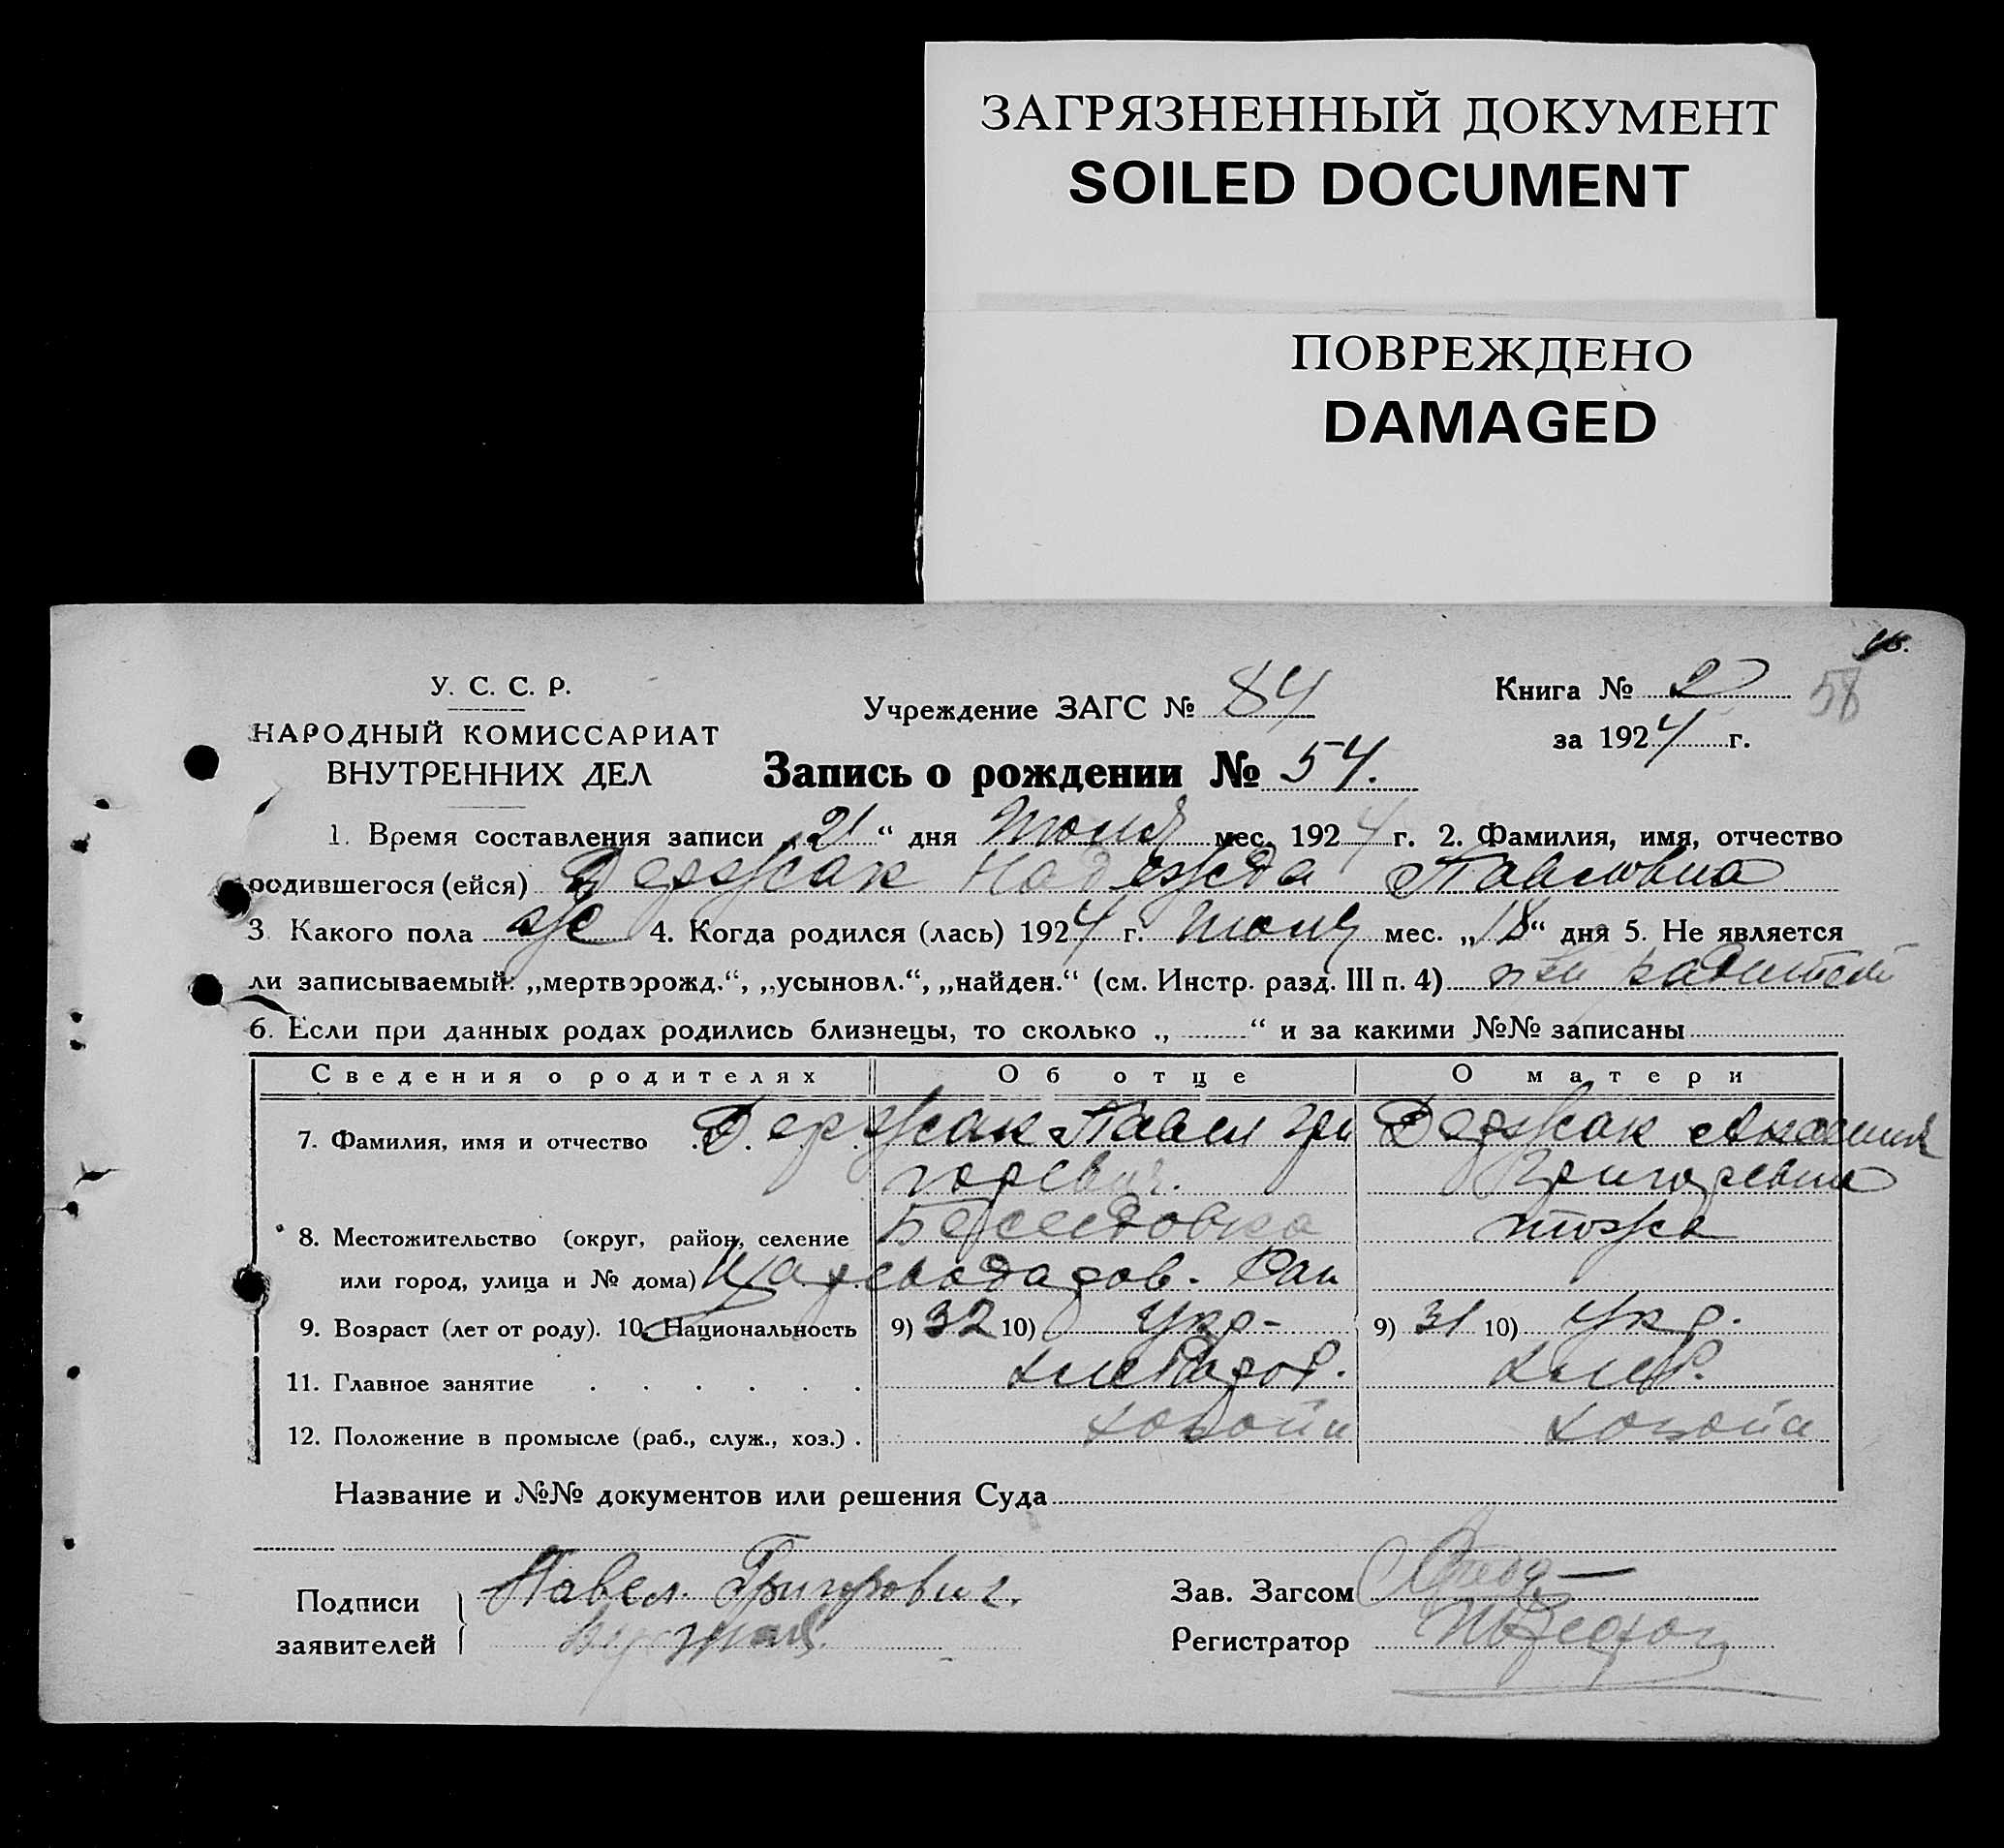 ЗАГРЯЗНЕННЫЙ ДОКУМЕНТ
SOILED DOCUMENT
ПОВРЕЖДЕНО
DAMAGED
У. С. С. Р.
НАРОДНЫЙ КОМИССАРИАТ
ВНУТРЕННИХ ДЕЛ
Учреждение ЗАГС № 84
Книга № 2 58
за 1924 г.
Запись о рождении № 54.
1. Время составления записи „21“ дня Июня мес. 1924 г. 2. Фамилия, имя, отчество
родившегося (ейся) Держак Надежда Павловна
3. Какого пола ж 4. Когда родился (лась) 1924 г. Июня мес. „18“ дня 5. Не является
ли записываемый: „мертворожд.“, „усыновл.“, „найден.“ (см. Инстр. разд. III п. 4) при
6. Если при данных родах родились близнецы, то сколько „ “ и за какими №№ записаны
Сведения о родителях Об отце О матери
7. Фамилия, имя и отчество Держак Павел Гри Держак
горевич. Григоревна
8. Местожительство (округ, район, селение тоже
или город, улица и № дома)
9. Возраст (лет от роду). 10. Национальность 9) 32 10) Укр- 9) 31 10) Укр.
11. Главное занятие хлебороб. хлеб.
12. Положение в промысле (раб., служ., хоз.)
Название и №№ документов или решения Суда
Подписи заявителей Павел Григорович.
Зав. Загсом
Регистратор